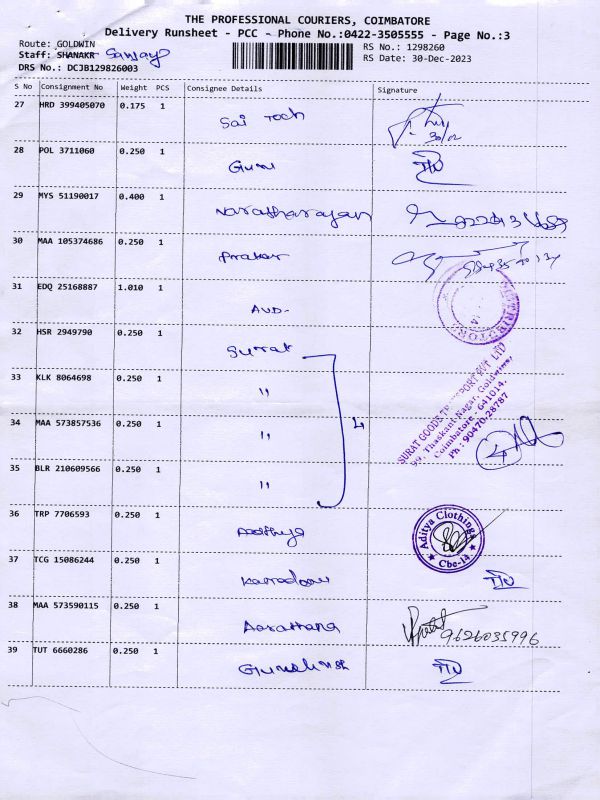 THE PROFESSIONAL COURIERS, COIMBATORE
Delivery Runsheet - PCC - Phone No.:0422-3505555 - Page No.:3
Route: GOLDWIN
RS No.: 1298260
Staff: SHANAKR Sanjay
RS Date: 30-Dec-2023
DRS No.: DCJB129826003
S No Consignment No Weight PCS Consignee Details Signature
27 HRD 399405070 0.175 1 Sai Tech
30/12
28 POL 3711060 0.250 1 Guru
29 MYS 51190017 0.400 1
30 MAA 105374686 0.250 1
31 EDQ 25168887 1.010 1 AUD-
32 HSR 2949790 0.250 1 Surat
33 KLK 8064698 0.250 1 "
34 MAA 573857536 0.250 1 " 4
35 BLR 210609566 0.250 1 "
SURAT GOODS TRANSPORT PVT LTD
99, Thaskant Nagar, Goldwins,
Coimbatore - 641014.
Ph : 90470-28787
36 TRP 7706593 0.250 1
Aditya Clothings
Cbe-14
37 TCG 15086244 0.250 1
38 MAA 573590115 0.250 1 Aarathana
9626035996
39 TUT 6660286 0.250 1